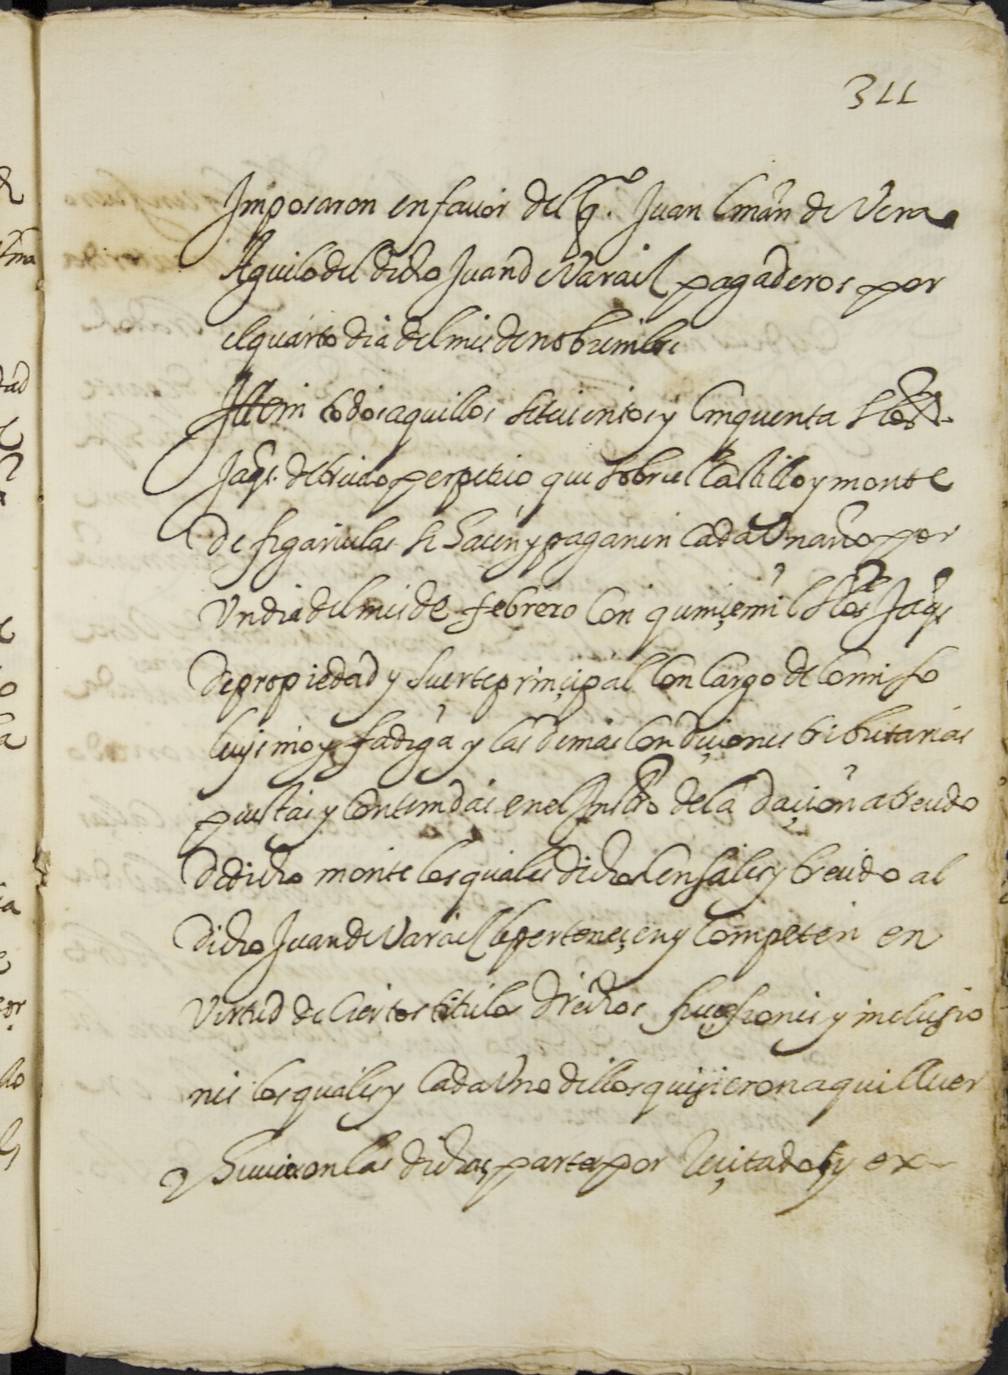 311
Imposaron en favor del q.º Juan Cmān de Vera
Aguilo del dicho Juan de Narail pagaderos por
el quarto dia del mes de nobiembre
Ittem todos aquillos setecientos y Cinquenta sos
Jaqs. de treudo perpetuo que sobre el Castillo y monte
de figaruelas se hacen y pagan en cada un año por
Un dia del mes de febrero Con quince mil sos Jaqs
de propiedad y suerte principal Con cargo de Comisso
luysmo y fadiga y las demas Condiçiones tributarias
puestas y Contenidas en el Instro de la daçion a treudo
de dicho monte los quales dichos Censales y treudo al
dicho Juan de Narail le perteneçen y Competen en
Virtud de Ciertos titulos drechos suçessiones y inclusio
nes los quales y Cada Uno dellos quisieron aqui aver
y huvieron las dichas partes por Reçitados y ex-